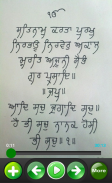 ੴ
ਸਤਿਨਾਮੁ ਕਰਤਾ ਪੁਰਖੁ
ਨਿਰਭਉ ਨਿਰਵੈਰੁ ਅਕਾਲ
ਮੂਰਤਿ ਅਜੂਨੀ ਸੈਭੰ
ਗੁਰ ਪ੍ਰਸਾਦਿ॥
॥ਜਪੁ॥
ਆਦਿ ਸਚੁ ਜੁਗਾਦਿ ਸਚੁ॥
ਹੈ ਭੀ ਸਚੁ ਨਾਨਕ ਹੋਸੀ
ਭੀ ਸਚੁ॥੧॥